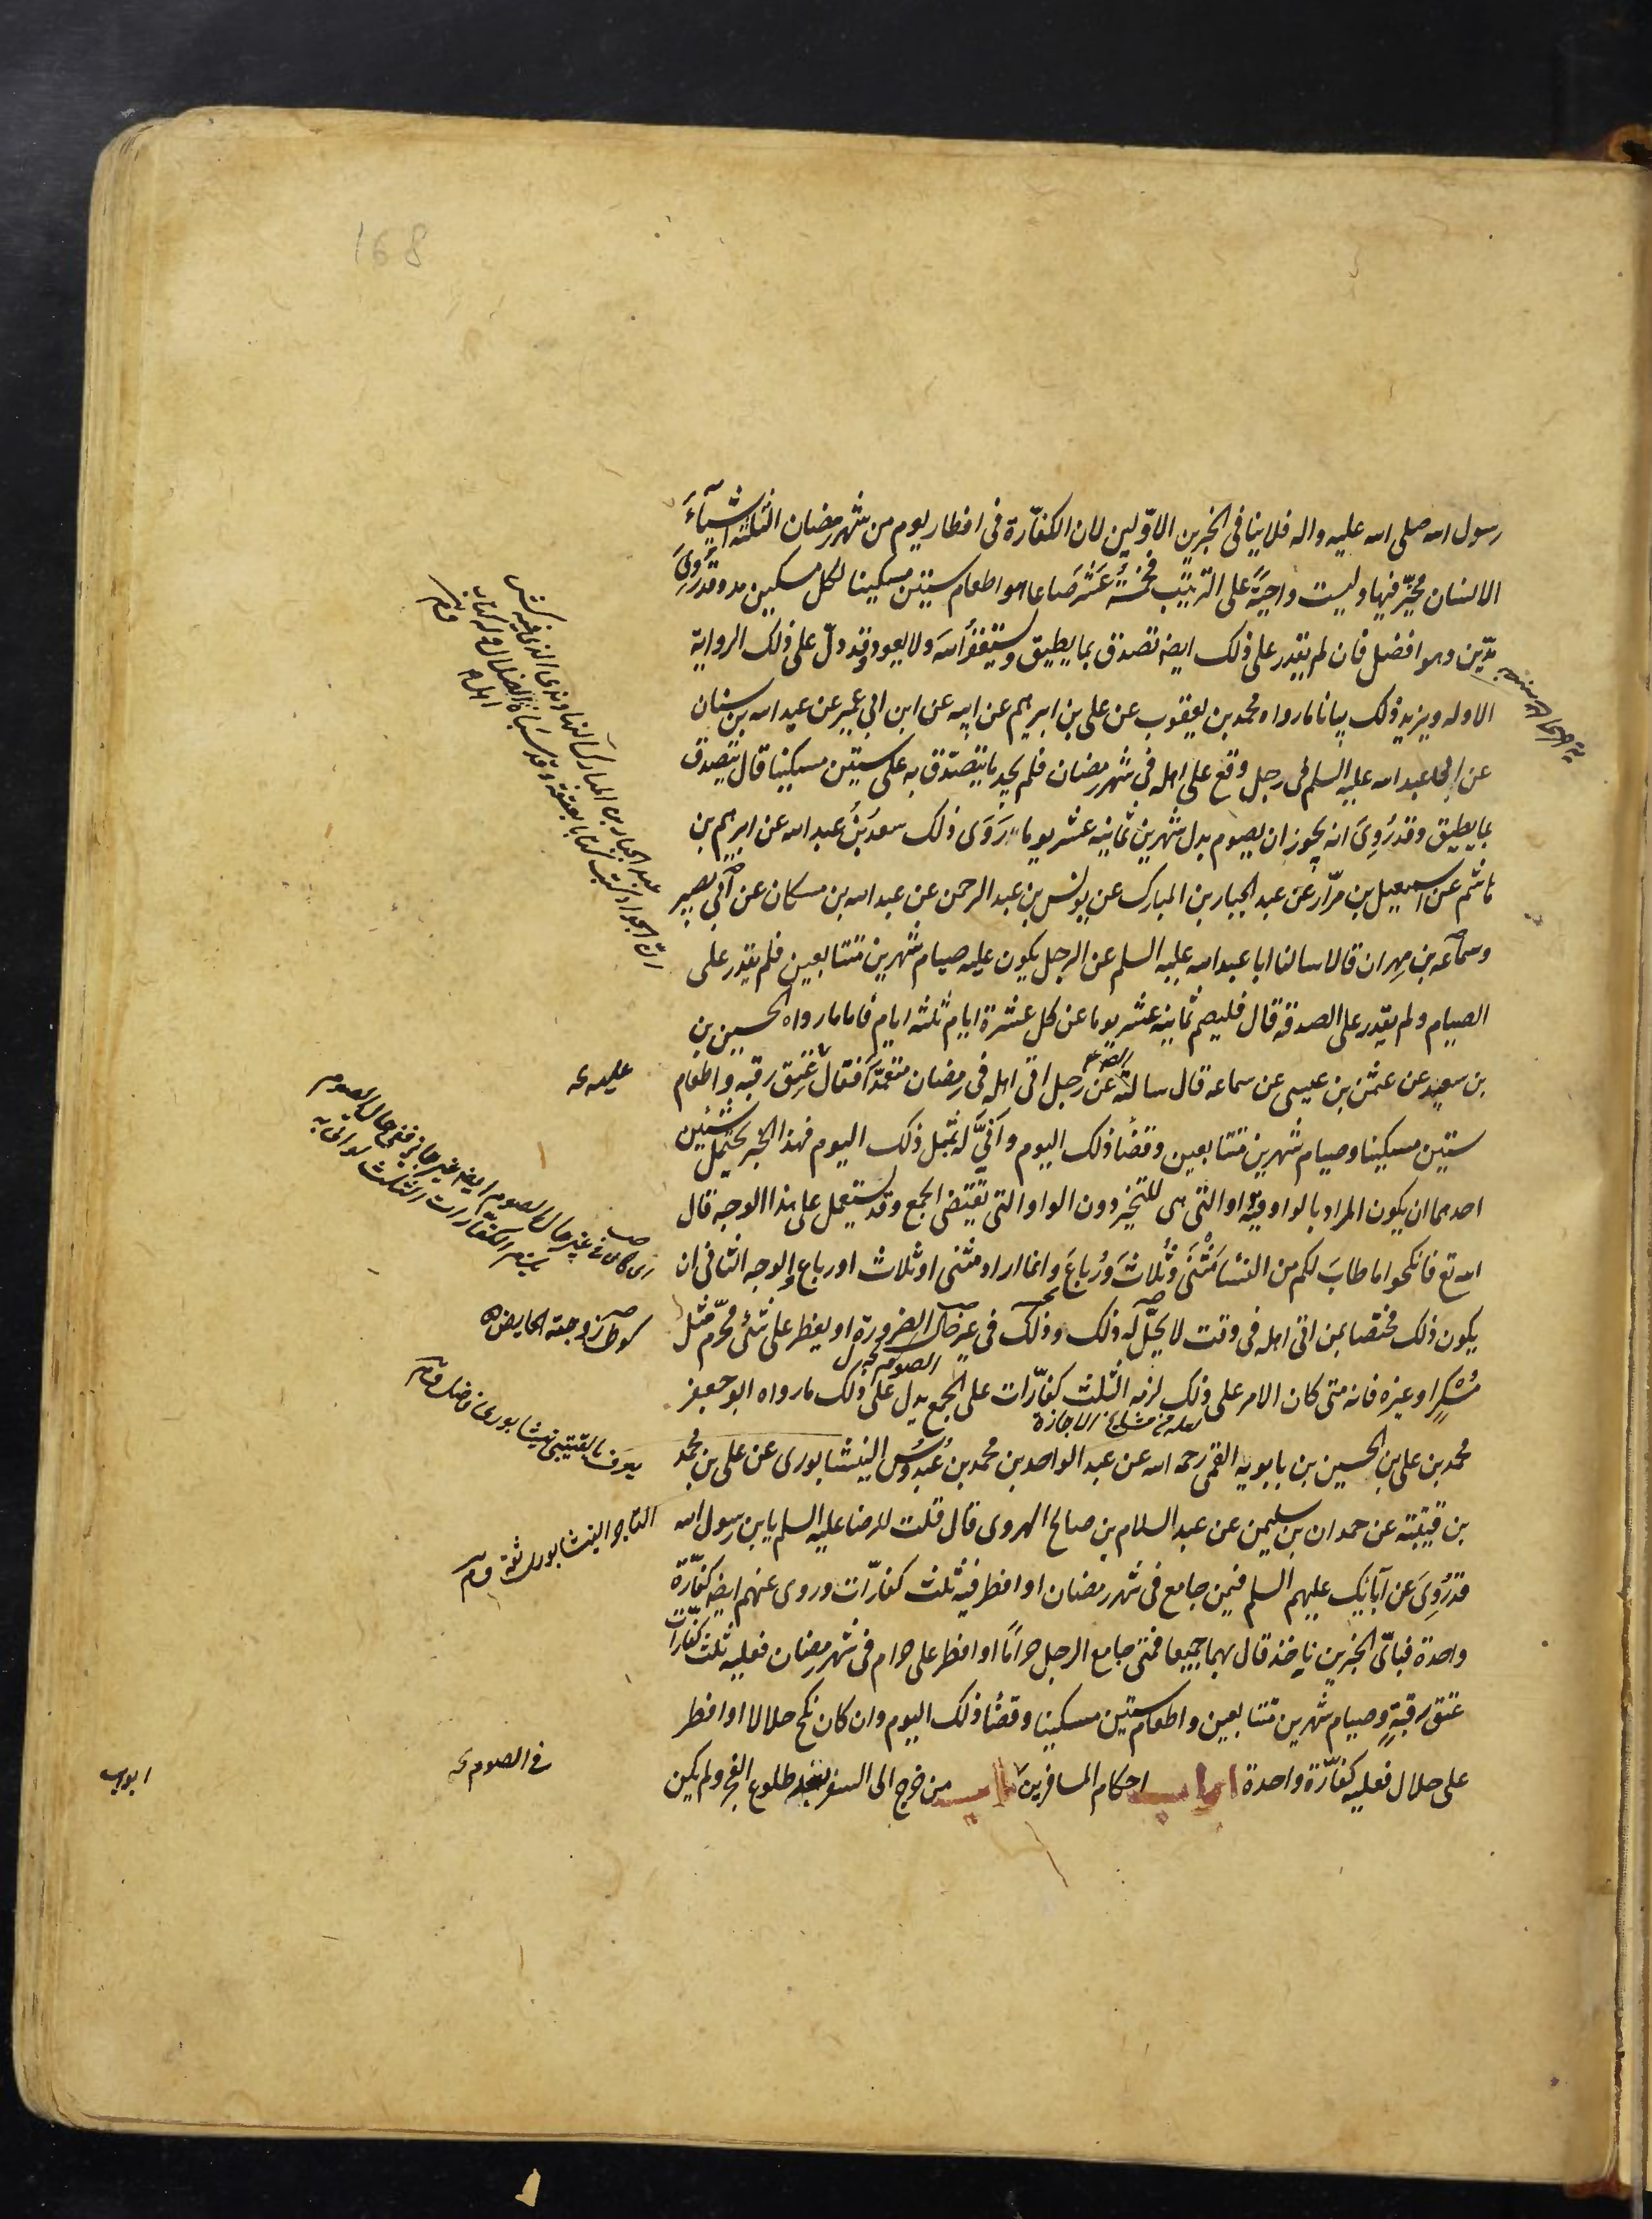 168
رسول الله صلى الله عليه واله فلا ينافى الخبرين الاوّلين لان الكفّارة فى افطار يوم من شهر رمضان الثلثة اشيآءَ
الانسان مخيّر فيها وليست واجبَةً على الترتيب فخمسةُ عَشَر صَاعا هو اطعام ستين مسكينا لكل مسكين مد وقد رُوِىَ
مدّين وهو افضل فان لم يقدر على ذلك ايضه تصدق بما يطيق وستيغفرُ اللهَ ولا يعود وقد دلّ على ذلك الرواية
الاوله ويزيد ذلك بيانا ما رواه محمد بن يعقوب عن على بن ابرهيم عن ابيه عن ابن ابى عمير عن عبد الله بن سنان
عن ابى عبد الله عليه السلم فى رجل وقع على اهله فى شهر رمضان فلم يجد ما يتصدّق به على ستين مسكينا قال يتصدق
بما يطيق وقد رُوِىَ انه يجوز ان يصوم بدل شهرين ثمانيه عشر يوما رَوَى ذلك سعد بنُ عبد الله عن ابرهيم بن
هاشم عن اسمعيل بن مرّار عن عبد الجبار بن المبارك عن يونس بن عبد الرحمن عن عبد الله بن مسكان عن ابى بصير
وسماعه بن مهران قالا سالنا ابا عبد الله عليه السلم عن الرجل يكون عليه صيام شهرين متتابعين فلم يقدر على
الصيام ولم يقدر على الصدقه قال فليصم ثمانيه عشر يوما عن كل عشرة ايام ثلثه ايام فاما ما رواه الحسين بن
بن سعيد عن عثمن بن عيسى عن سماعه قال سالته عن رجل اتى اهله فى رمضان متعمدًا فقال عتق رقبه واطعام
عليه
ستين مسكينا وصيام شهرين متتابعين وقضا ذلك اليوم وانىّ له بمثل ذلك اليوم فهذا الخبر يحتمل شيئين
احدهما ان يكون المراد بالواو فيه او التى هى للتخير دون الواو التى تقتضى الجمع وقد يستعمل على هذا الوجه قال
الله تع فانكحوا ما طابَ لكم من النسا مَثْنَى وثُلاثَ ورُباعَ وانما اراد مثنى او ثلاث او رباع والوجه الثانى ان
يكون ذلك مختصا بمن اتى اهله فى وقت لا يحلّ له ذلك وذلك فى غير حال الضرورة او يفطر على شئ محرّم مثل
كوطى زوجته الحايض
الصوم
مُسْكرٍ او غيره فانه متى كان الامر على ذلك لزمه الثلث كفّارات على الجمع يدل على ذلك ما رواه ابو جعفر
لعله من مشايخ الاجازة
محمد بن على بن الحسين بن بابويه القمى رحمه الله عن عبد الواحد بن محمد بن عُبدُوسُ النيشابورى عن على بن محمد
يعرف بالقتيبى نيشابورى فاضل
بن قتيبة عن حمدان بن سليمن عن عبد السلام بن صالح الهروى قال قلت للرضا عليه السلم يابن رسول الله
التاجر النيشابورى ثقة
قد رُوِىَ عن آبائك عليهم السلم فيمن جامع فى شهر رمضان او افطر فيه ثلث كفارّات وروى عنهم ايضه كفّارّة
واحدة فبائّ الخبرين ناخذ قال بهما جميعا فمتى جامع الرجل حرامًا او افطر على حرام فى شهر رمضان فعليه ثلث كفّارات
عتق رقبةٍ وصيام شهرين متتابعين واطعام ستين مسكينا وقضا ذلك اليوم وان كان نكح حلالا او افطر
على حلال فعليه كفّارة واحدة ابواب احكام المسافرين باب من خرج الى السفر بعد طلوع الفجر ولم يكن
فى الصوم
ابواب